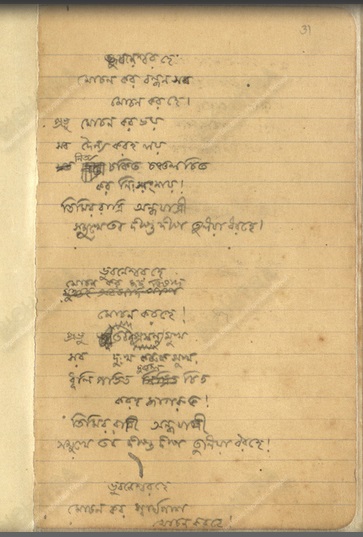 31
ভুবনেশ্বর হে
মোচন কর বন্ধন সব
মোচন কর হে।
প্রভু মোচন কর ভয়
সব দৈন্য করহ লয়
নিত্য চকিত চঞ্চল চিত
কর নিঃসংশয়!
তিমির রাত্রি অন্ধ যাত্রী
সমুখে তব দীপ্ত দীপ তুলিয়া ধরহে।
ভুবনেশ্বর হে
মোচন কর
মোচন কর হে!
প্রভু
সব দুঃখ সুখ
ধূলি পতিত চিত
তিমির রাত্রি অন্ধ যাত্রী
সমুখে তব দীপ্ত দীপ তুলিয়া ধরহে!
ভুবনেশ্বর হে
মোচন কর স্বার্থপাশ
মোচন কর হে!